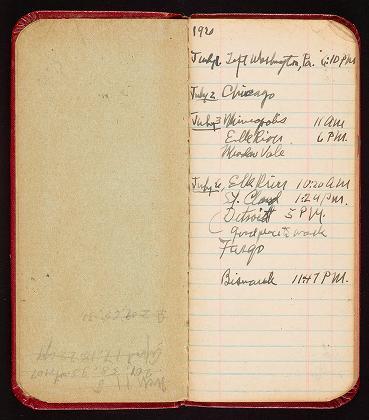 1920
July 1 Left Washington, Pa. 6:10 PM
July 2 Chicago
July 3 Minneapolis 11 am
Elk River 6 P.M.
Meadow Vale
July 6, Elk River 10:20 AM
St. Cloud 1:24 P.M.
Detroit 5 P.M.
good place to wash
Fargo
Bismarck 11:47 P.M.